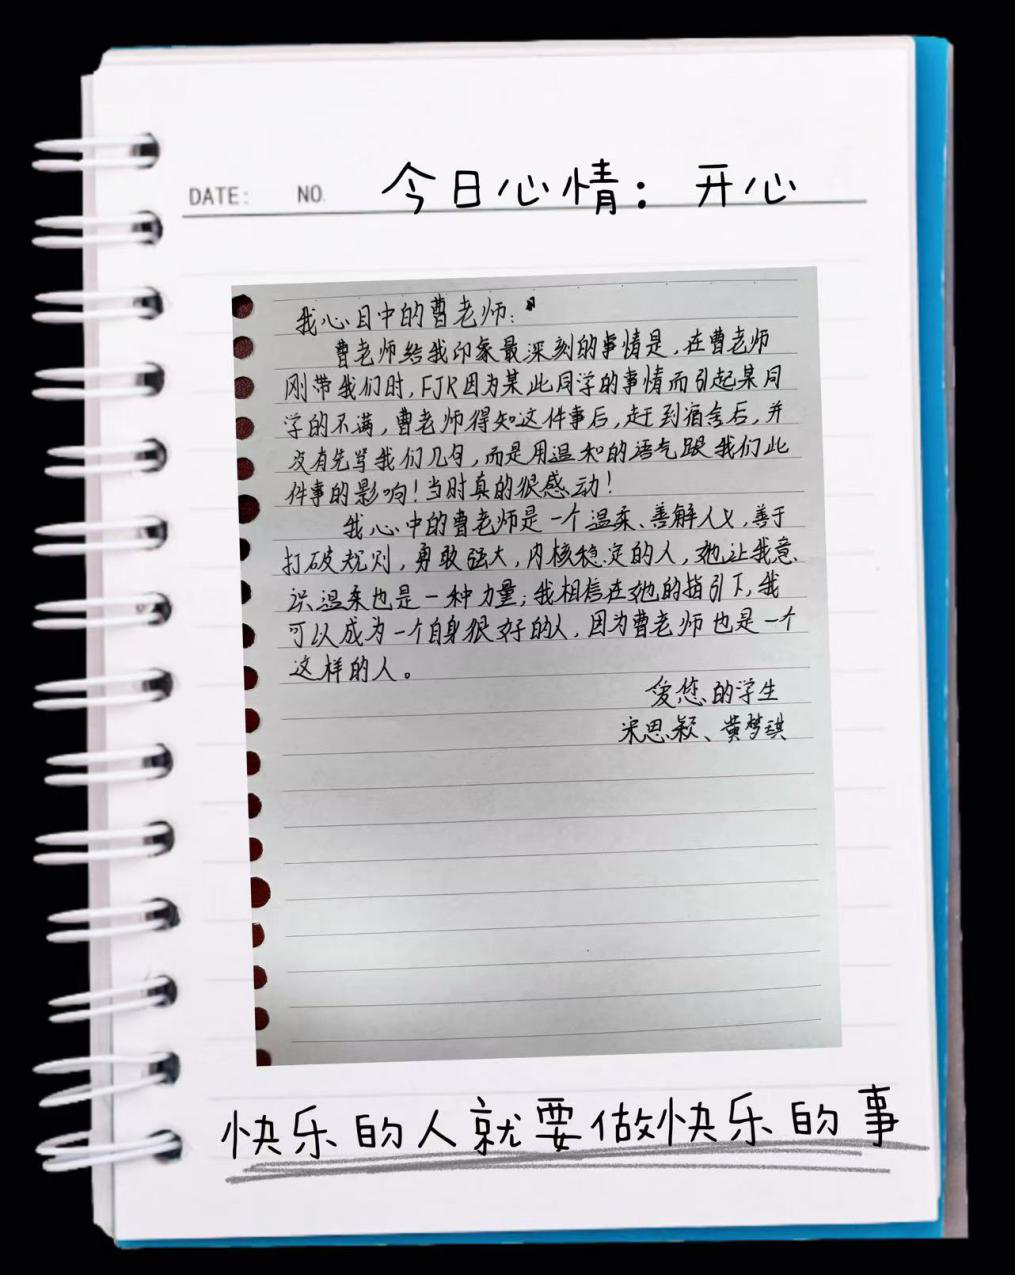 DATE: NO. 今日心情：开心
我心目中的曹老师：
曹老师给我印象最深刻的事情是，在曹老师
刚带我们时，FJR因为某此同学的事情而引起某同
学的不满，曹老师得知这件事后，赶到宿舍后，并
没有先骂我们几句，而是用温和的语气跟我们此
件事的影响！当时真的很感动！
我心中的曹老师是一个温柔、善解人义，善于
打破规则，勇敢强大，内核稳定的人，她让我意
识温柔也是一种力量；我相信在她的指引下，我
可以成为一个自身很好的人，因为曹老师也是一个
这样的人。
爱您的学生
宋思颖、黄梦琪
快乐的人就要做快乐的事